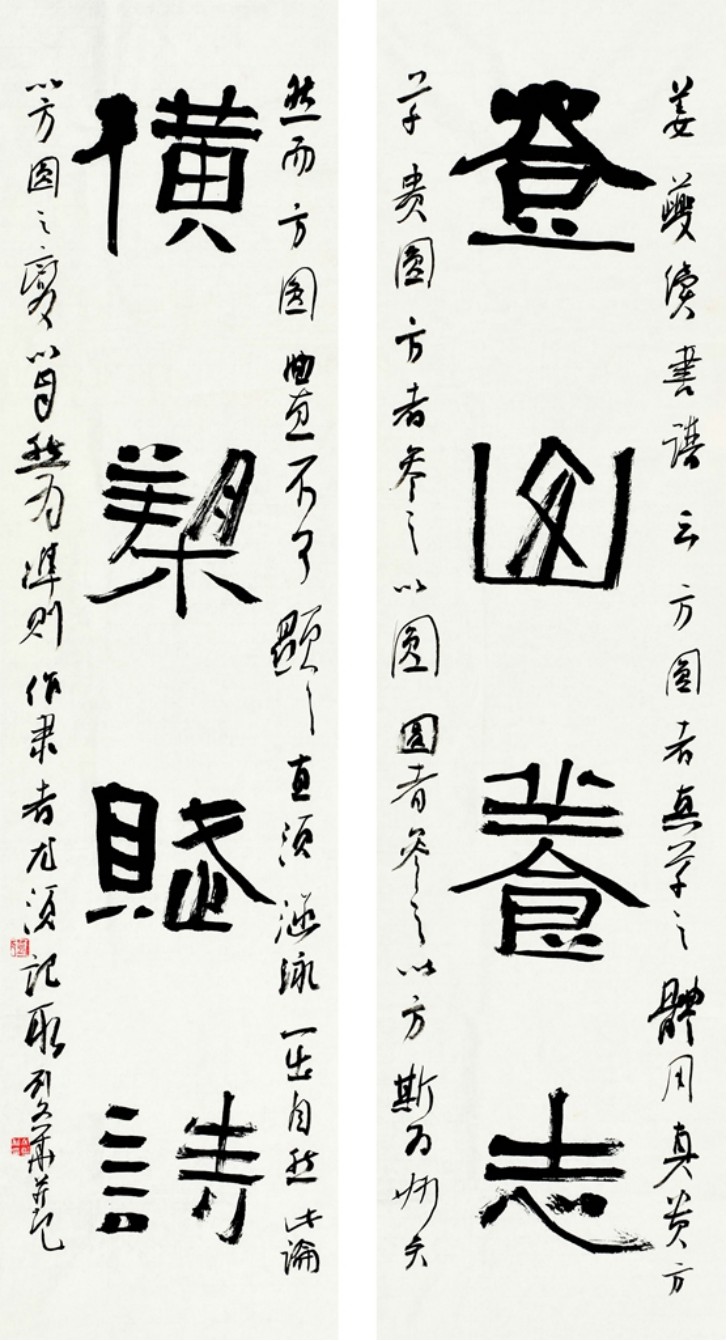 姜夔續書譜云方圓者真草之體用真貴方
登山養志
草貴圓方者參之以圓圓者參之以方斯為妙矣
然而方圓曲直不可顯直須涵泳一出自然此論
橫槊賦詩
以方圓之變以自然為準則作隸者尤須記取劉文華并記